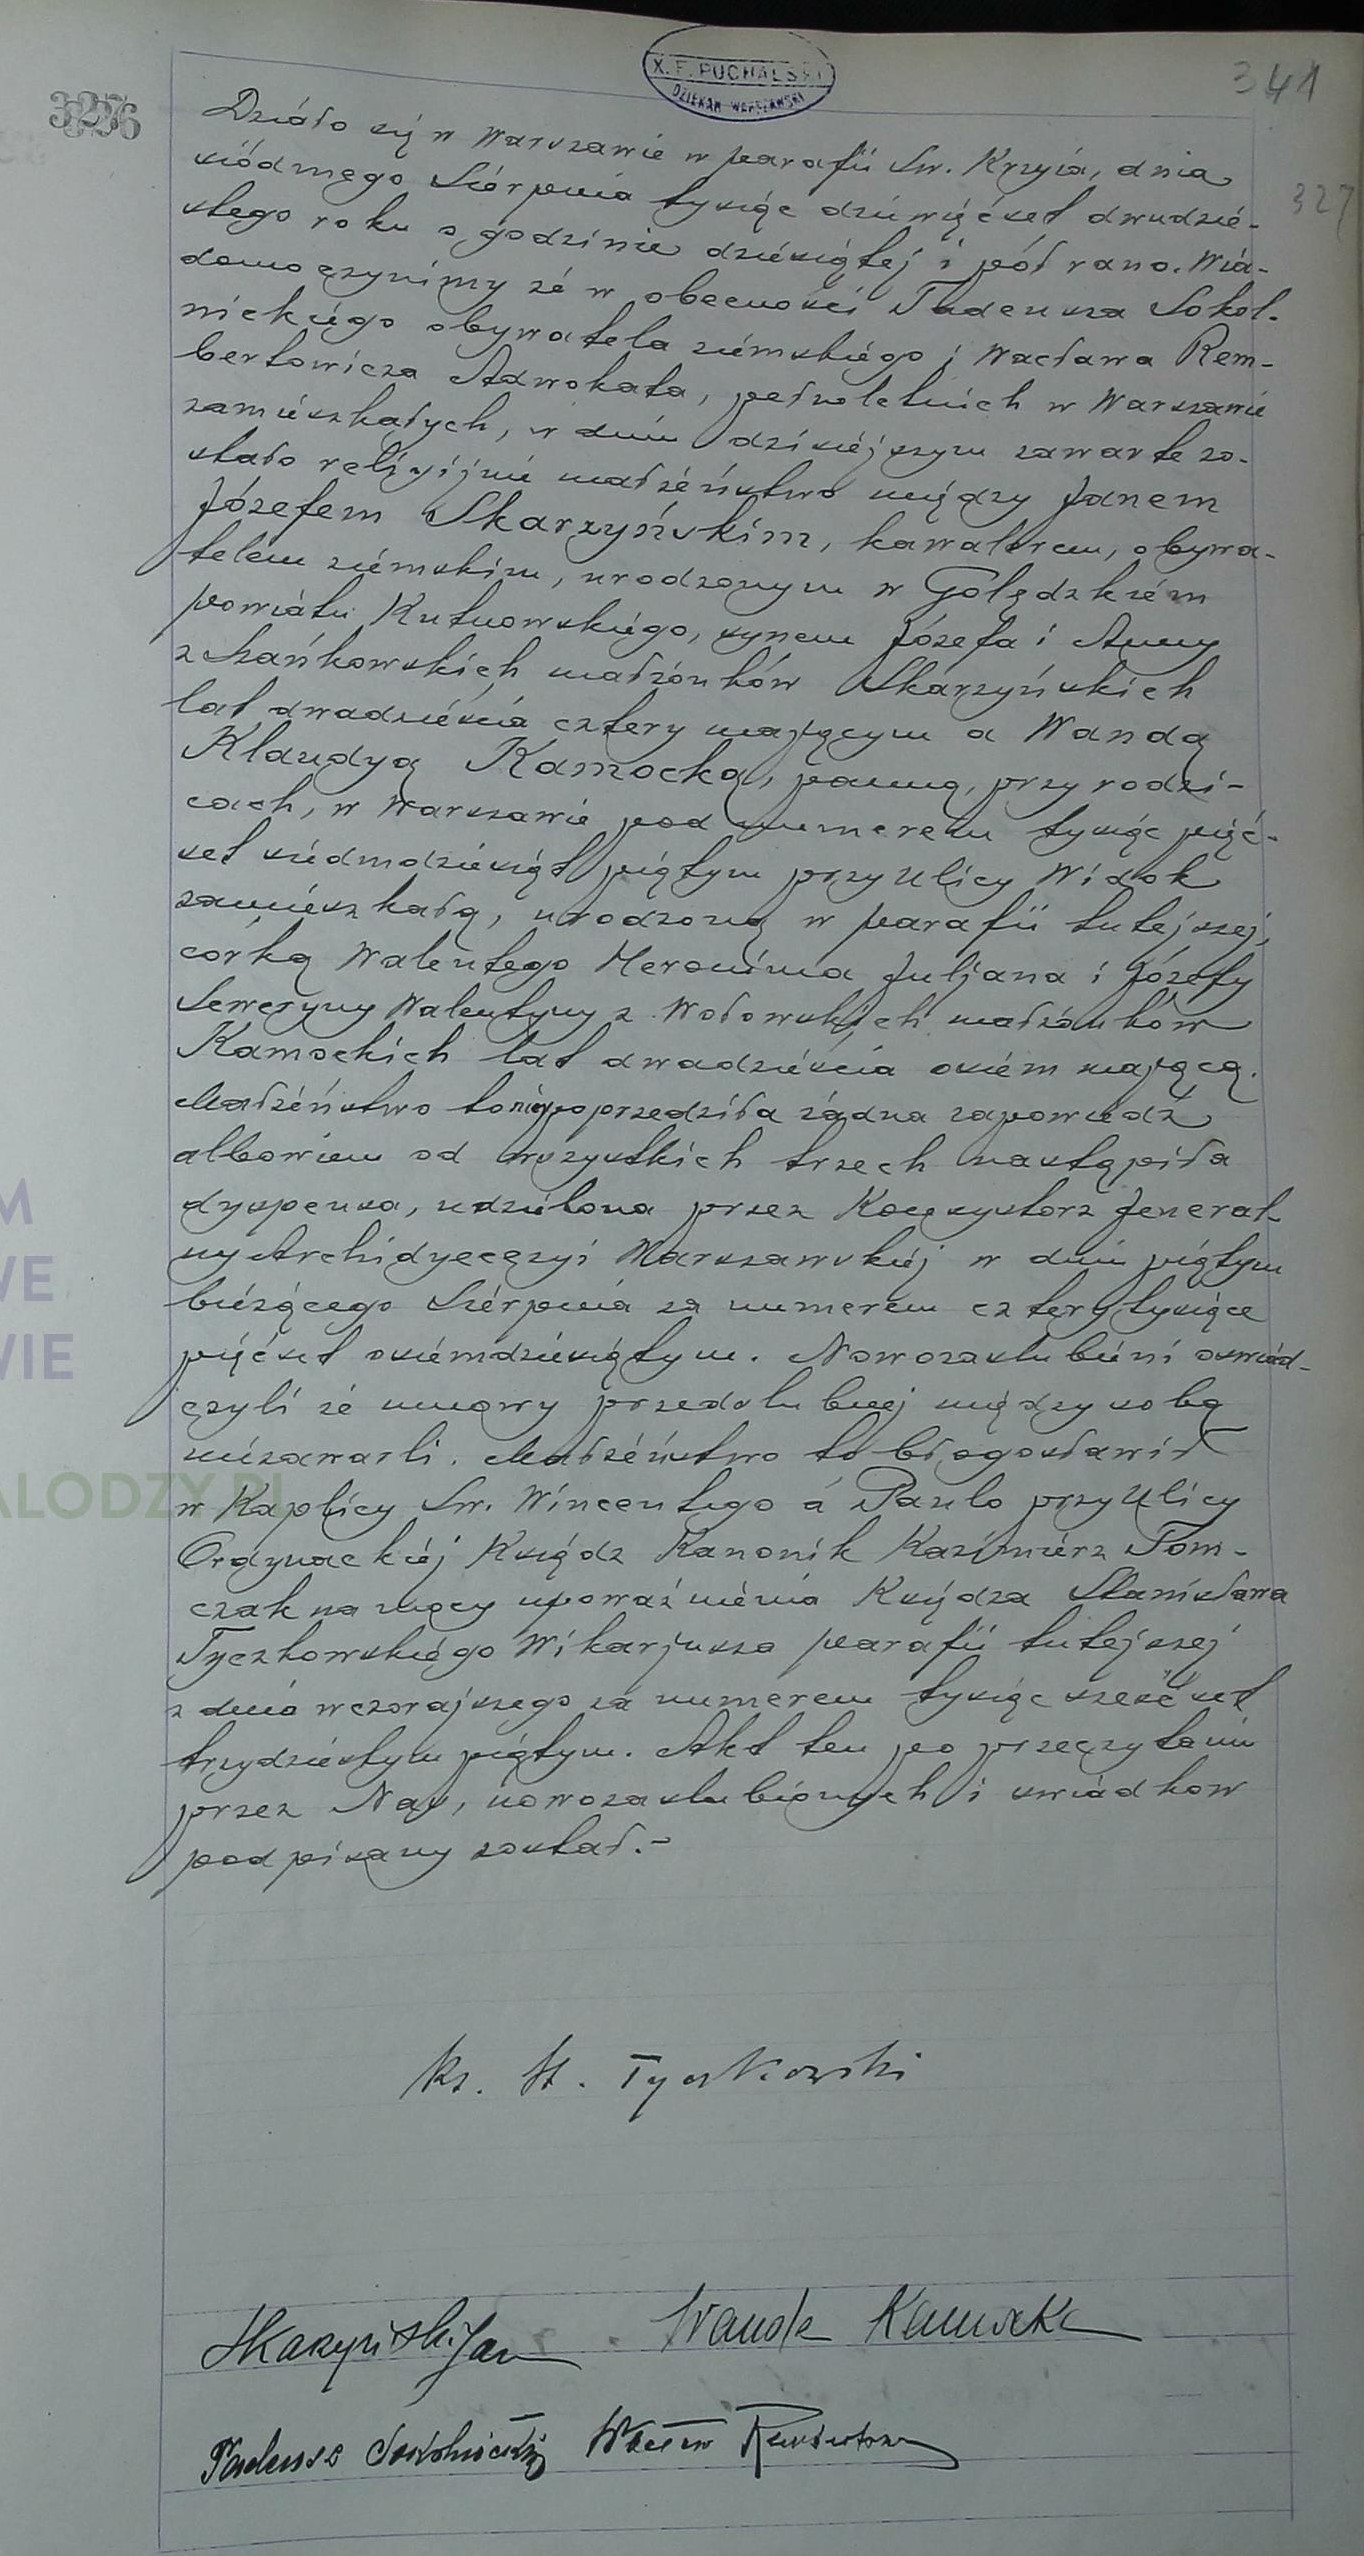 X. F. PUCHALSKI
DZIEKAN WARSZAWSKI
341
327
Działo się w Warszawie w parafii Św. Krzyża, dnia
siódmego Sierpnia tysiąc dziewięćset dwudzie-
stego roku o godzinie dziesiątej i pół rano. Wia-
domo czynimy że w obecności Tadeusza Sokol-
nickiego obywatela ziemskiego i Wacława Rem-
bertowicza Adwokata, pełnoletnich w Warszawie
zamieszkałych, w dniu dzisiejszym zawarte zo-
stało religijne małżeństwo między Janem
Józefem Skarzyńskim, kawalerem, obywa-
telem ziemskim, urodzonym w Golędzkiem
powiatu Kutnowskiego, synem Józefa i Anny
z Mańkowskich małżonków Skarzyńskich
lat dwadzieścia cztery mającym a Wandą
Klaudyą Kamocką, panną, przy rodzi-
cach, w Warszawie pod numerem tysiąc pięć-
set siedmdziesiąt piątym przy Ulicy Widok
zamieszkałą, urodzoną w parafii tutejszej,
córką Walentego Hieronima Juljana i Józefy
Seweryny Walentyny z Wołowskich małżonków
Kamockich lat dwadzieścia osiem mającą.
Małżeństwo to niepoprzedziła żadna zapowiedź
albowiem od wszystkich trzech nastąpiła
dyspensa, udzielona przez Konsystorz Jeneral-
ny Archidyecezyi Warszawskiej w dniu piątym
bieżącego Sierpnia za numerem cztery tysiące
pięćset osiemdziesiątym. Nowozaślubieni oświad-
czyli że umowy przedślubnej między sobą
niezawarli. Małżeństwo to błogosławił
w Kaplicy Św. Wincentego á Paulo przy Ulicy
Ordynackiej Ksiądz Kanonik Kazimierz Tom-
czak na mocy upoważnienia Księdza Stanisława
Tyczkowskiego Wikarjusza parafii tutejszej
z dnia wczorajszego za numerem tysiąc sześćset
trzydziestym piątym. Akt ten po przeczytaniu
przez Nas, nowozaślubionych i świadków
podpisany został.-
Ks. St. Tyczkowski
Skarzyński Jan Wanda Kamocka
Tadeusz Sokolnicki Wacław Rembertowicz
M
WE
WIE
ALODZY.PL